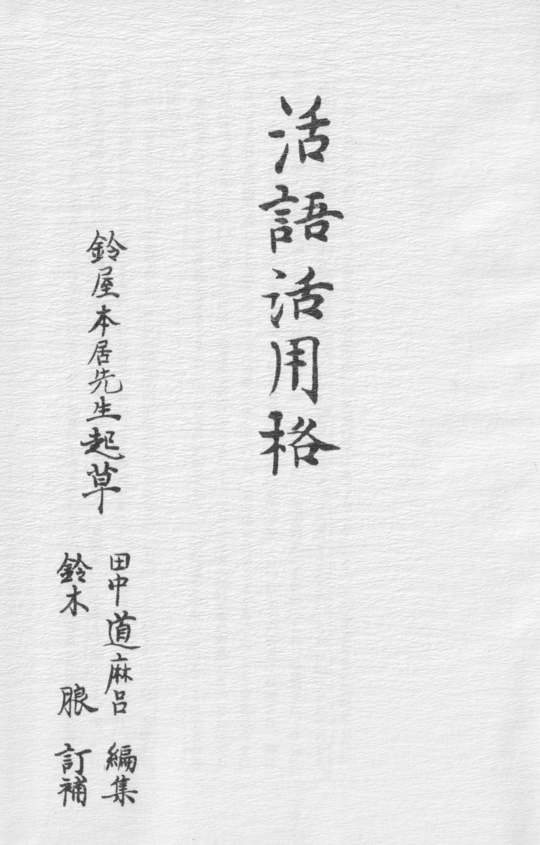 活語活用格
鈴屋本居先生起草
田中道麻呂 編集
鈴木 朖 訂補